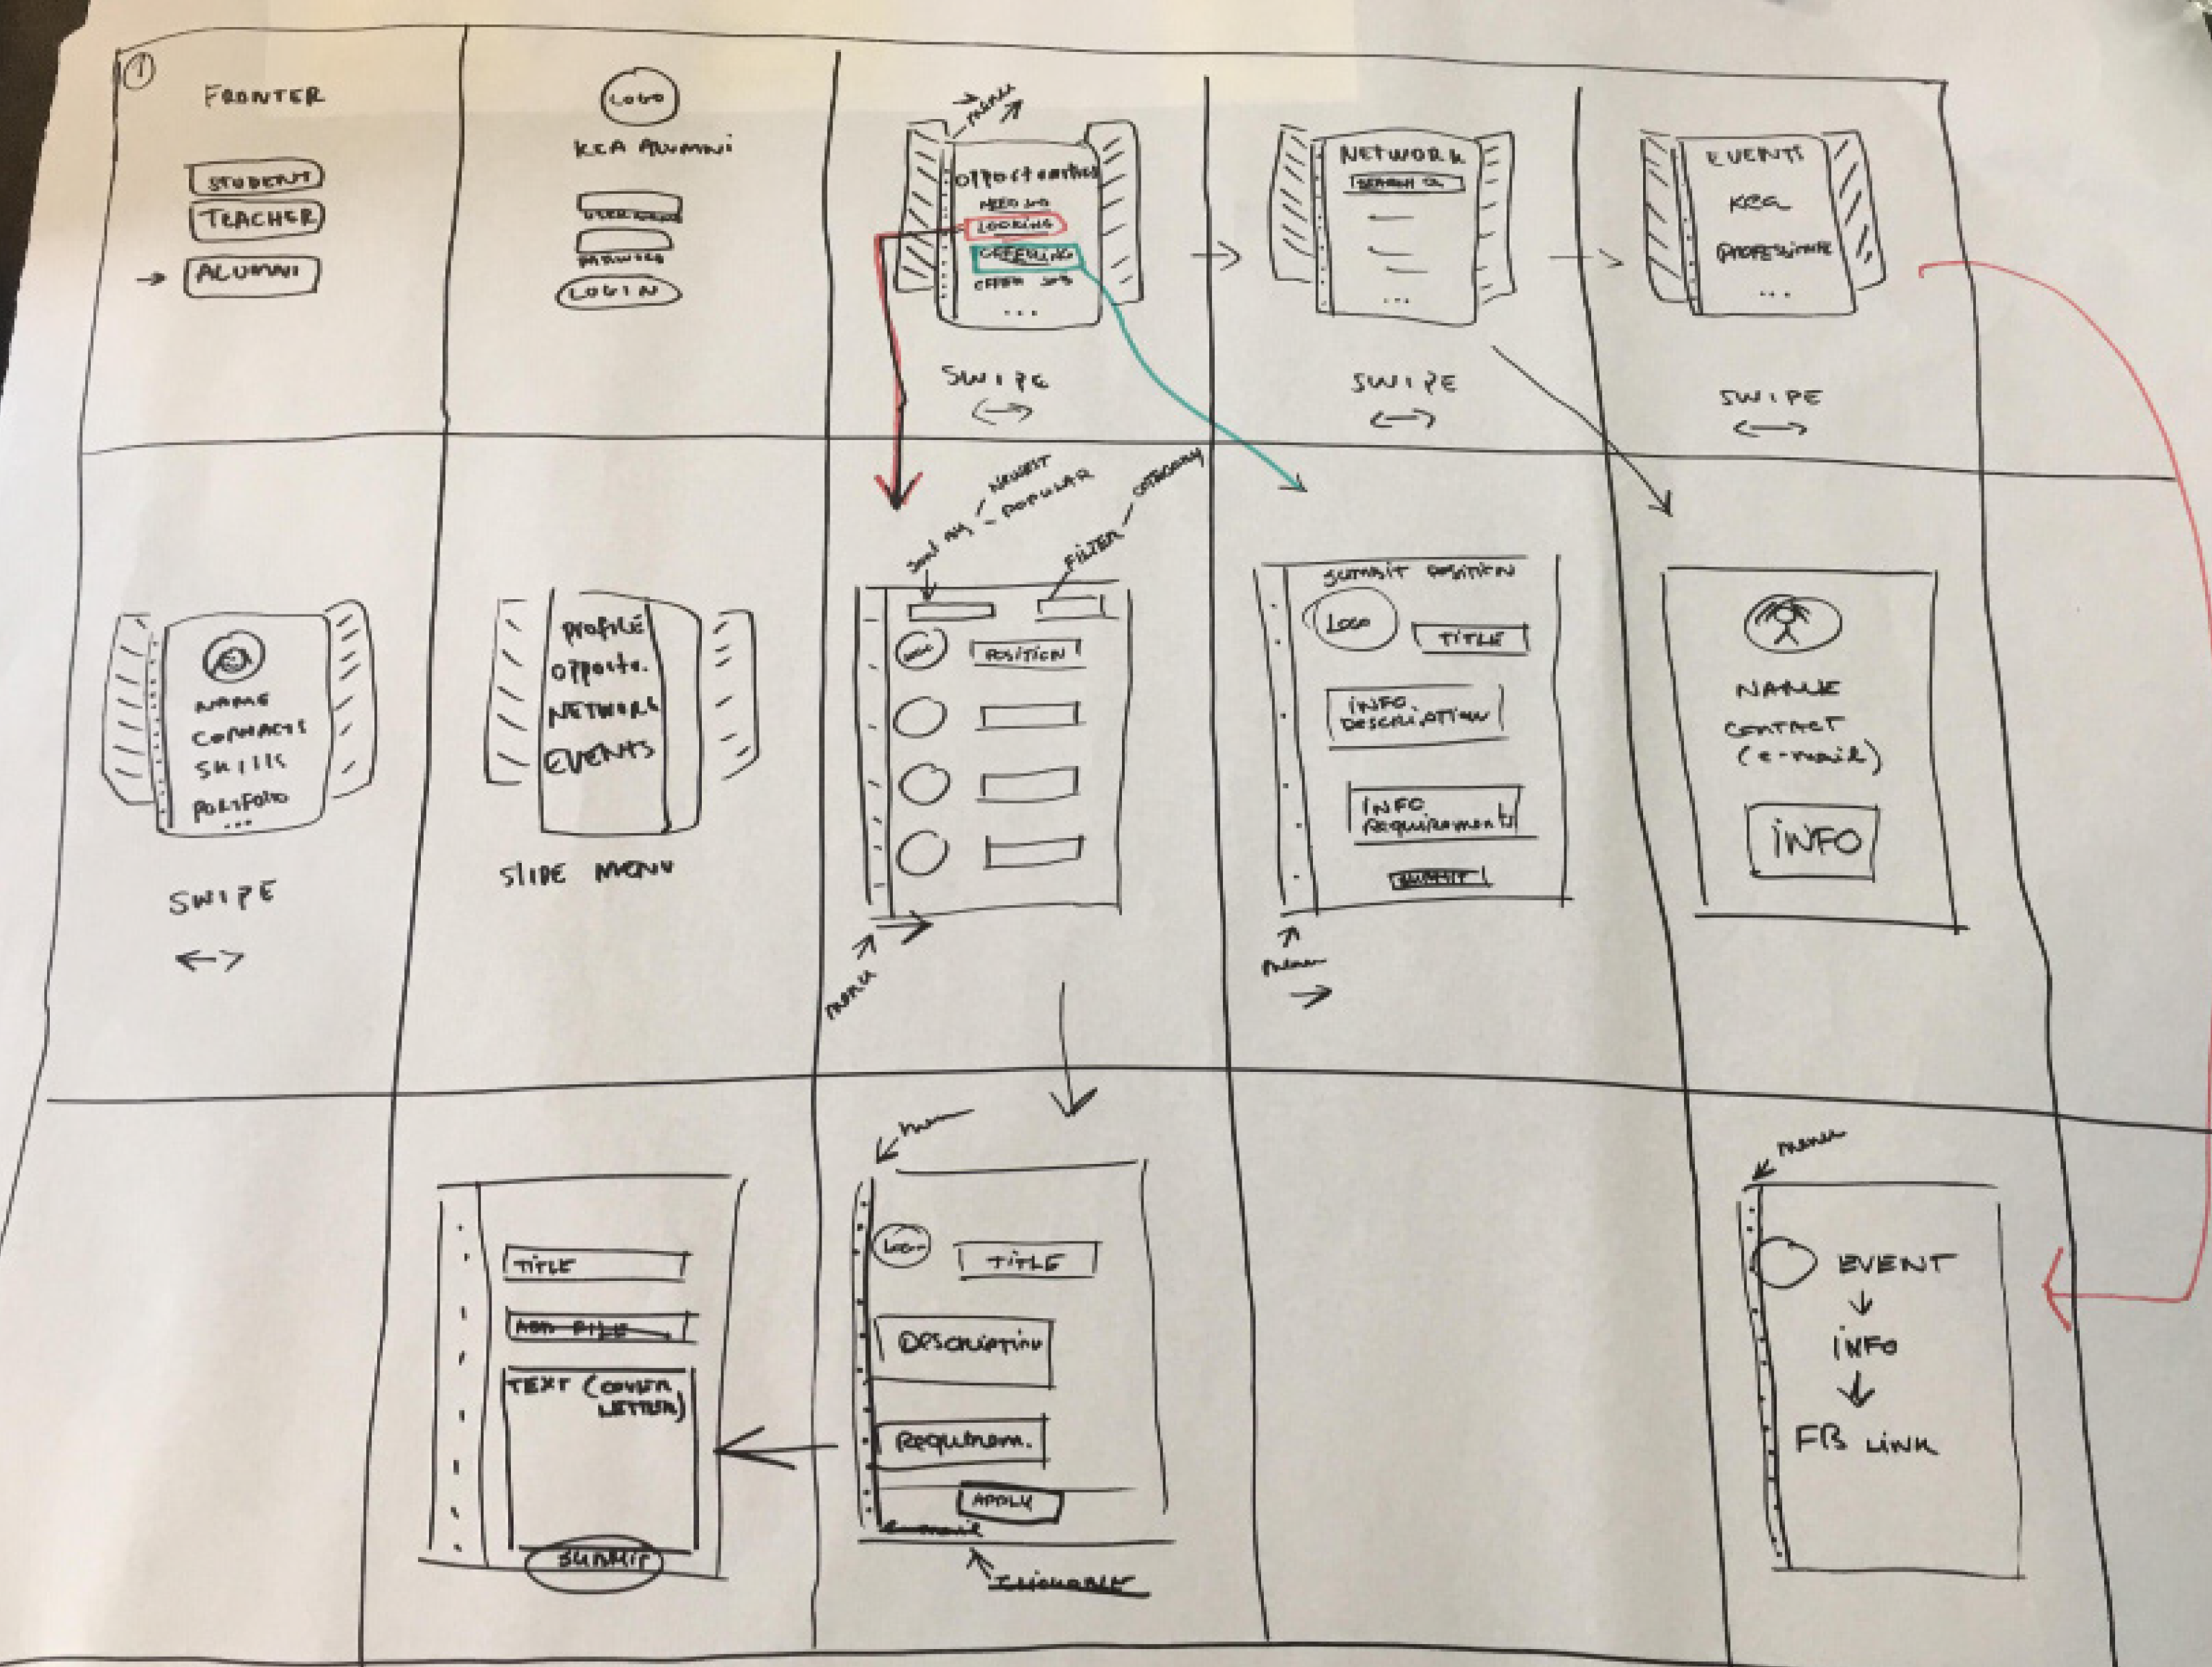 1
FRONTER
STUDENT
TEACHER
ALUMNI
LOGO
KEA ALUMNI
USERNAME
PASSWORD
LOGIN
menu
Opportunities
NEED JOB
LOOKING
OFFERING
OFFER JOB
...
SWIPE
NETWORK
SEARCH
...
SWIPE
EVENTS
KEA
PROFESSIONAL
...
SWIPE
NAME
CONTACTS
Skills
PORTFOLIO
...
SWIPE
Profile
Opportu.
NETWORK
EVENTS
SLIDE MENU
Sort by
NEWEST
POPULAR
FILTER
CATEGORY
LOGO
POSITION
menu
SUMBIT POSITION
LOGO
TITLE
INFO.
DESCRIPTION
INFO
Requirements
SUBMIT
menu
NAME
CONTACT
(e-mail)
INFO
TITLE
ADD FILE
TEXT (COVER
LETTER)
SUBMIT
menu
LOGO
TITLE
DESCRIPTION
Requirem.
APPLY
e-mail
CLICKABLE
menu
EVENT
INFO
FB LINK